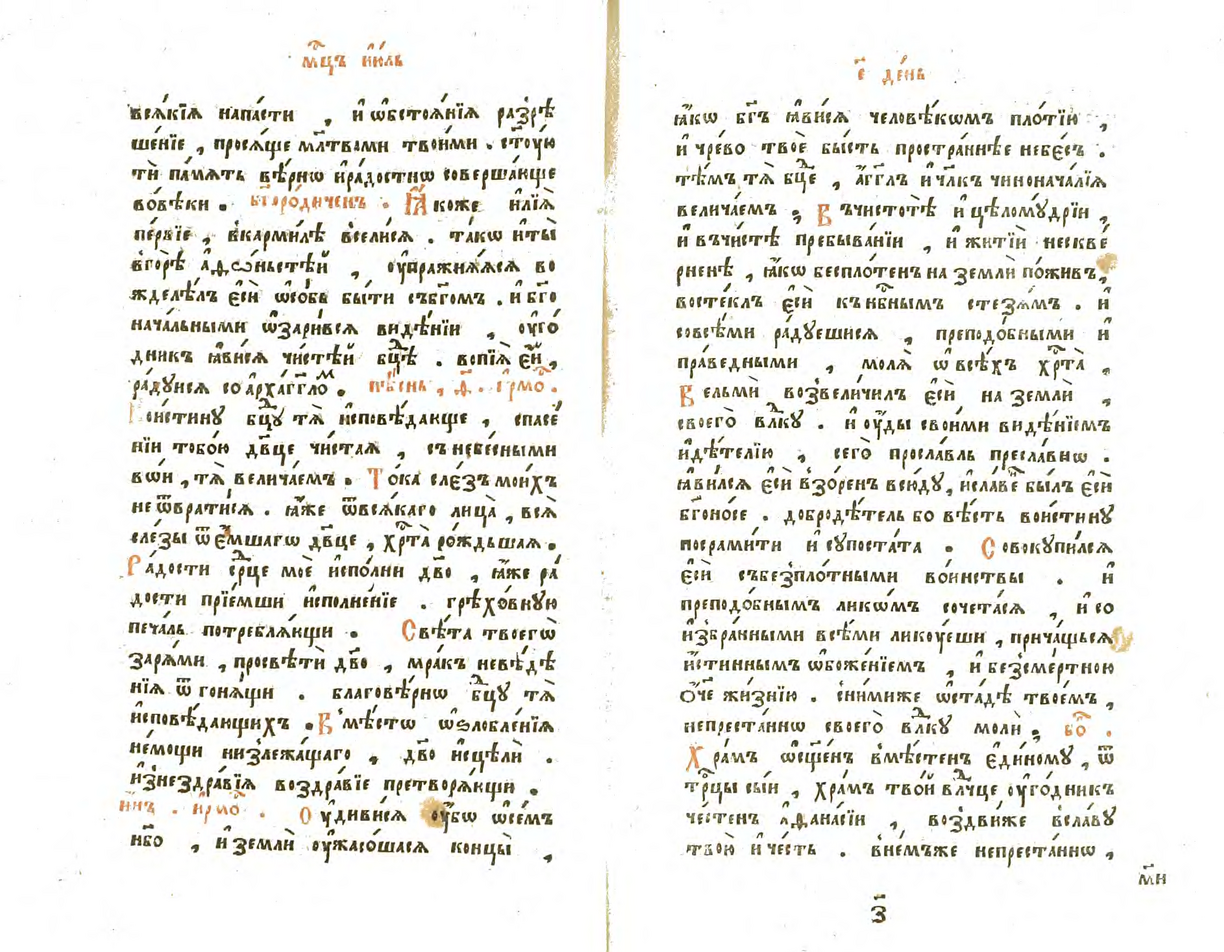 мⷭ҇цъ і҆ю́ль
вся́кїѧ напа́сти , и҆ ѡ҆бстоѧ́нїѧ разрѣ
ше́нїе , просѧ́ще мл҃твами твои́ми . ст҃ꙋ́ю
тѝ па́мѧть вѣ́рнѡ и҆ра́достнѡ соверша́юще
во́вѣки . бг҃оро́диченъ . Ꙗ҆́коже и҆лїѧ̀
пе́рвїе , вкарми́лѣ всели́сѧ . та́кѡ и҆ты̀
вгорѣ̀ а҆ѳѡ́ньстѣй , ᲂу҆пражнѧ́ѧсѧ во
жделѣ́лъ є҆сѝ ѡ҆со́бь бы́ти събг҃омъ . и҆ бг҃о
нача́льными ѡ҆зари́всѧ видѣ́нїи , ᲂу҆го́
дникъ ꙗ҆ви́сѧ чи́стѣй бцⷣѣ . вопїѧ̀ є҆́й ,
ра́дꙋисѧ со а҆рха́гг҃лоⷨ . пѣ́снь , д҃ . і҆рмоⷭ҇ .
Вои́стинꙋ бцⷣꙋ тѧ̀ и҆сповѣ́дающе , спасе́
нїи тобо́ю дв҃це чи́стаѧ , съ небе́сными
во́и , тѧ̀ велича́емъ . То́ка сле́зъ мои́хъ
не ѿврати́сѧ . ꙗ҆́же ѿвсѧ́каго лица̀ , всѧ̀
сле́зы ѿ є҆́мшагѡ дв҃це , хрⷭ҇та̀ ро́ждьшаѧ .
Ра́дости се́рⷣце моѐ и҆спо́лни дв҃о , ꙗ҆́же ра́
дости прїе́мши и҆сполне́нїе . грѣхо́внꙋю
печа́ль потреблѧ́ющи . Свѣ́та твоегѡ̀
зарѧ́ми , просвѣтѝ дв҃о , мра́къ невѣ́дѣ
нїѧ ѿ гонѧ́щи . благовѣ́рнѡ бцⷣꙋ тѧ̀
и҆сповѣ́дающихъ . Вмѣ́стѡ ѡ҆ѕлобле́нїѧ
не́мощи низлежа́щаго , дв҃о и҆сцѣлѝ .
и҆знездра́вїѧ воздра́вїе претворѧ́ющи .
и҆нъ . і҆рмоⷭ҇ . Оу҆диви́сѧ ᲂу҆́бѡ ѡ҆се́мъ
нб҃о , и҆ землѝ ᲂу҆жасо́шасѧ концы̀ ,
є҃ де́нь
ꙗ҆́кѡ бг҃ъ ꙗ҆ви́сѧ человѣ́кѡмъ пло́тїю ,
и҆ чре́во твоѐ бы́сть простра́ннѣе небе́съ .
тѣ́мъ тѧ̀ бцⷣе , а҆́гг҃лъ и҆ чл҃къ чинонача́лїѧ
велича́емъ , Въчистотѣ̀ и҆ цѣломꙋ́дрїи ,
и҆ въчи́стѣ пребыва́нїи , и҆ житїѝ нескве́
рненѣ , ꙗ҆́кѡ бесплотенъ на землѝ пожи́въ,
восте́клъ є҆сѝ къ нб҃нымъ стезѧ́мъ . и҆
совсѣ́ми ра́дꙋешисѧ , преподо́бными и҆
пра́ведными , молѧ̀ ѡ҆ всѣ́хъ хрⷭ҇та̀ ,
Вельмѝ возвели́чилъ є҆сѝ на землѝ ,
своего̀ влⷣкꙋ . и҆ ᲂу҆́ды свои́ми видѣ́нїемъ
и҆дѣ́телїю , сего̀ просла́вль пресла́внѡ .
ꙗ҆ви́лсѧ є҆сѝ взо́ренъ всю́дꙋ, и҆сла́венъ бы́лъ є҆сѝ
бг҃оно́се . добродѣ́тель бо вѣ́сть вои́стинꙋ
посрами́ти и҆ сꙋпоста́та . Совокꙋпи́лсѧ
є҆сѝ съ безпло́тными во́инствы . и҆
преподо́бнымъ ликѡ́мъ сочета́сѧ , и҆ со
и҆збра́нными всѣ́ми ликꙋ́еши , прича́щьсѧ
и҆́стиннымъ ѡ҆боже́нїемъ , и҆ безсме́ртною
ѻ҆́ч҃е жи́знїю . сни́миже ѡ҆ста́дѣ твое́мъ ,
непреста́ннѡ своего̀ влⷣкꙋ молѝ , боⷢ҇ .
Хра́мъ ѡ҆сщ҃е́нъ вмѣ́стенъ є҆ди́номꙋ , ѿ
трⷪ҇цы сы́й , хра́мъ тво́й влⷣчце ᲂу҆го́дникъ
че́стенъ а҆ѳана́сїи , воздви́же всла́вꙋ
твою̀ и҆ че́сть . вне́мъже непреста́ннѡ ,
мн҃
з҃